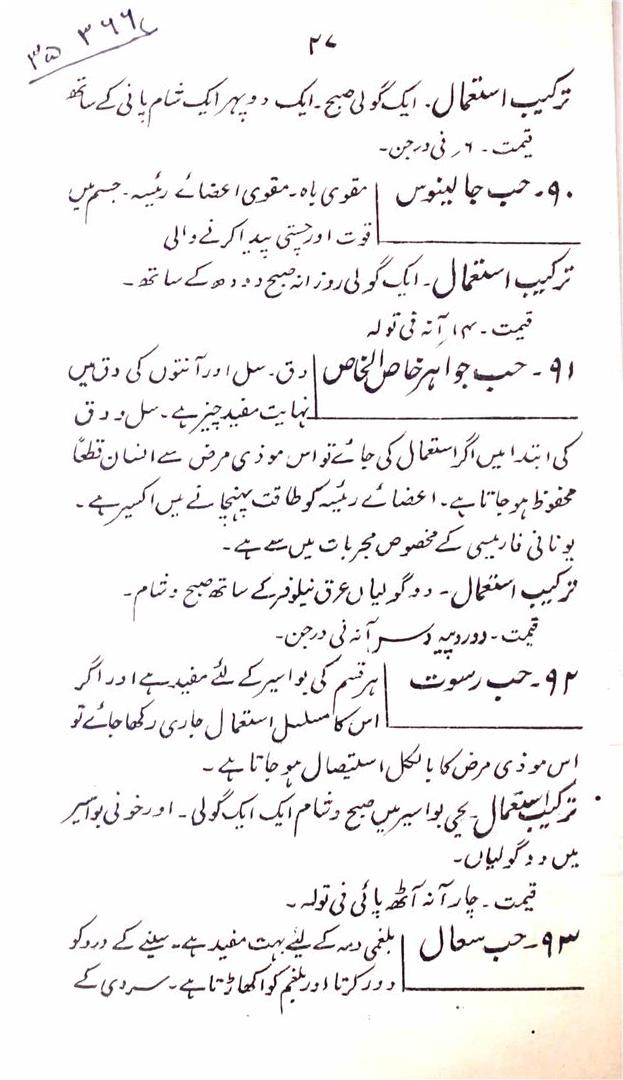 ۳۵ ۳۶۶۷
۲۷
ترکیب استعمال۔ ایک گولی صبح۔ ایک دوپہر ایک شام پانی کے ساتھ
قیمت۔ ۶ ر فی درجن۔
۹۰۔ حب جالینوس
مقوی باہ۔ مقوی اعضائے رئیسہ۔ جسم میں
قوت اور چستی پیدا کرنے والی
ترکیب استعمال۔ ایک گولی روزانہ صبح دودھ کے ساتھ۔
قیمت۔ ۱۴ آنہ فی تولہ
۹۱۔ حب جواہر خاص الخاص
دق۔ سل اور آنتوں کی دق میں
نہایت مفید چیز ہے۔ سل و دق
کی ابتدا میں اگر استعمال کی جائے تو اس موذی مرض سے انسان قطعاً
محفوظ ہو جاتا ہے۔ اعضائے رئیسہ کو طاقت پہنچانے میں اکسیر ہے۔
یونانی فارمیسی کے مخصوص مجربات میں سے ہے۔
ترکیب استعمال۔ دو گولیاں عرق نیلوفر کے ساتھ صبح و شام۔
قیمت۔ دو روپیہ دس آنہ فی درجن۔
۹۲۔ حب رسوت
ہر قسم کی بواسیر کے لئے مفید ہے اور اگر
اس کا مسلسل استعمال جاری رکھا جائے تو
اس موذی مرض کا بالکل استیصال ہو جاتا ہے۔
ترکیب استعمال۔ بحی بواسیر میں صبح و شام ایک ایک گولی۔ اور خونی بواسیر
میں دو گولیاں۔
قیمت۔ چار آنہ آٹھ پائی فی تولہ۔
۹۳۔ حب سعال
بلغمی دمہ کے لیئے بہت مفید ہے۔ سینے کے درد کو
دور کرتا اور بلغم کو اکھاڑتا ہے۔ سردی کے